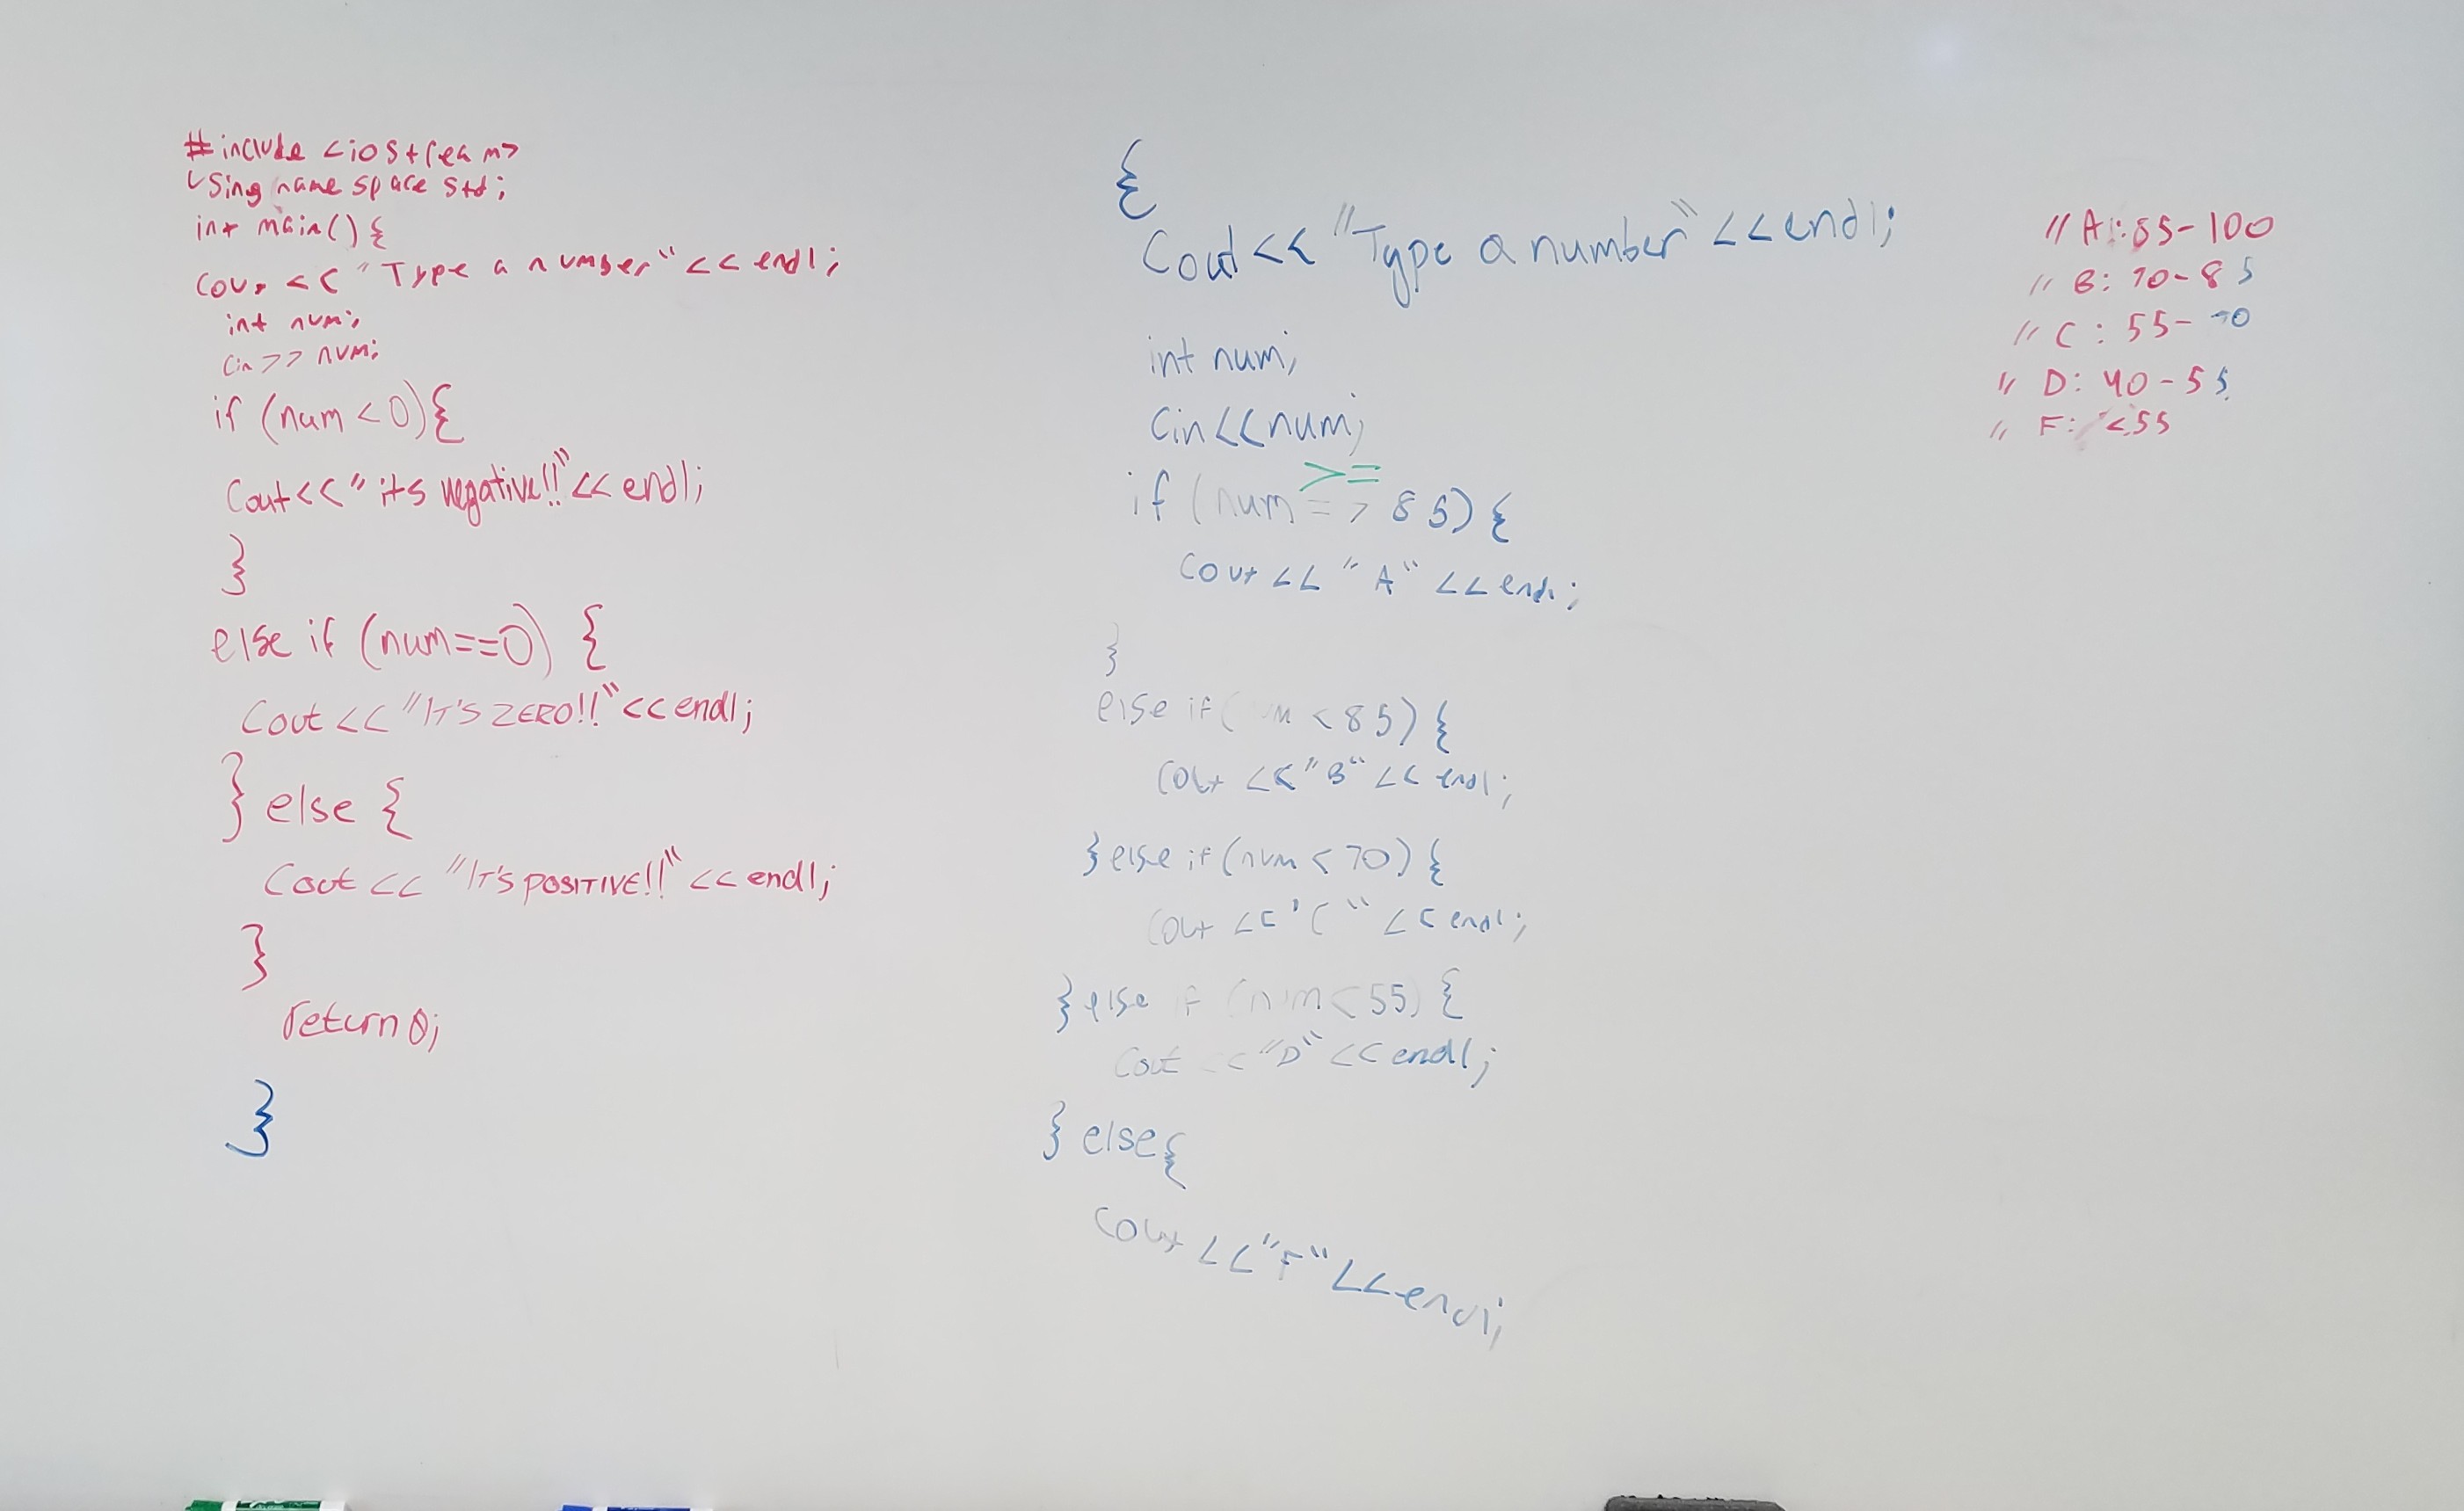 #include <iostream>
Using name space std;
int main() {
Cout << "Type a number" << endl;
int num;
Cin >> num;
if (num < 0) {
Cout << "its negative!!" << endl;
}
else if (num==0) {
Cout << "IT'S ZERO!!" << endl;
} else {
Cout << "IT'S POSITIVE!!" << endl;
}
return 0;
}
{
Cout << "Type a number" << endl;
int num;
Cin << num;
>=
if (num = > 85) {
Cout << "A" << endl;
}
else if ( < 85) {
Cout << "B" << endl;
} else if (num < 70) {
Cout << "C" << endl;
} else if (num < 55) {
Cout << "D" << endl;
} else {
Cout << "F" << endl;
// A: 85-100
// B: 70-85
// C: 55-70
// D: 40-55
// F: <55